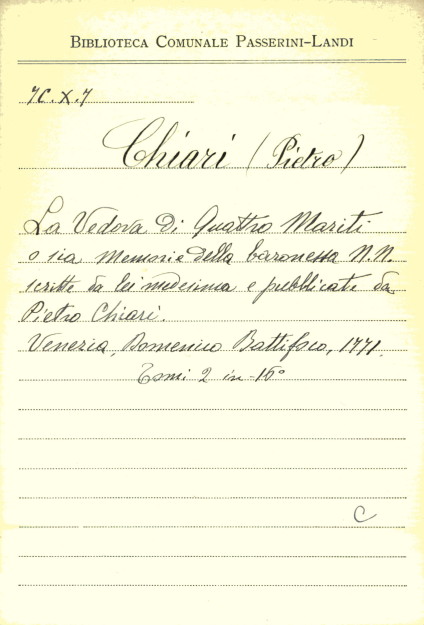 BIBLIOTECA COMUNALE PASSERINI-LANDI
7C.X.7
Chiari (Pietro)
La Vedova Di Quattro Mariti
o sia Memorie della baronessa N.N.
scritte da lei medesima e pubblicate da
Pietro Chiari.
Venezia, Domenico Battifoco, 1771.
Tomi 2 in-16°
C